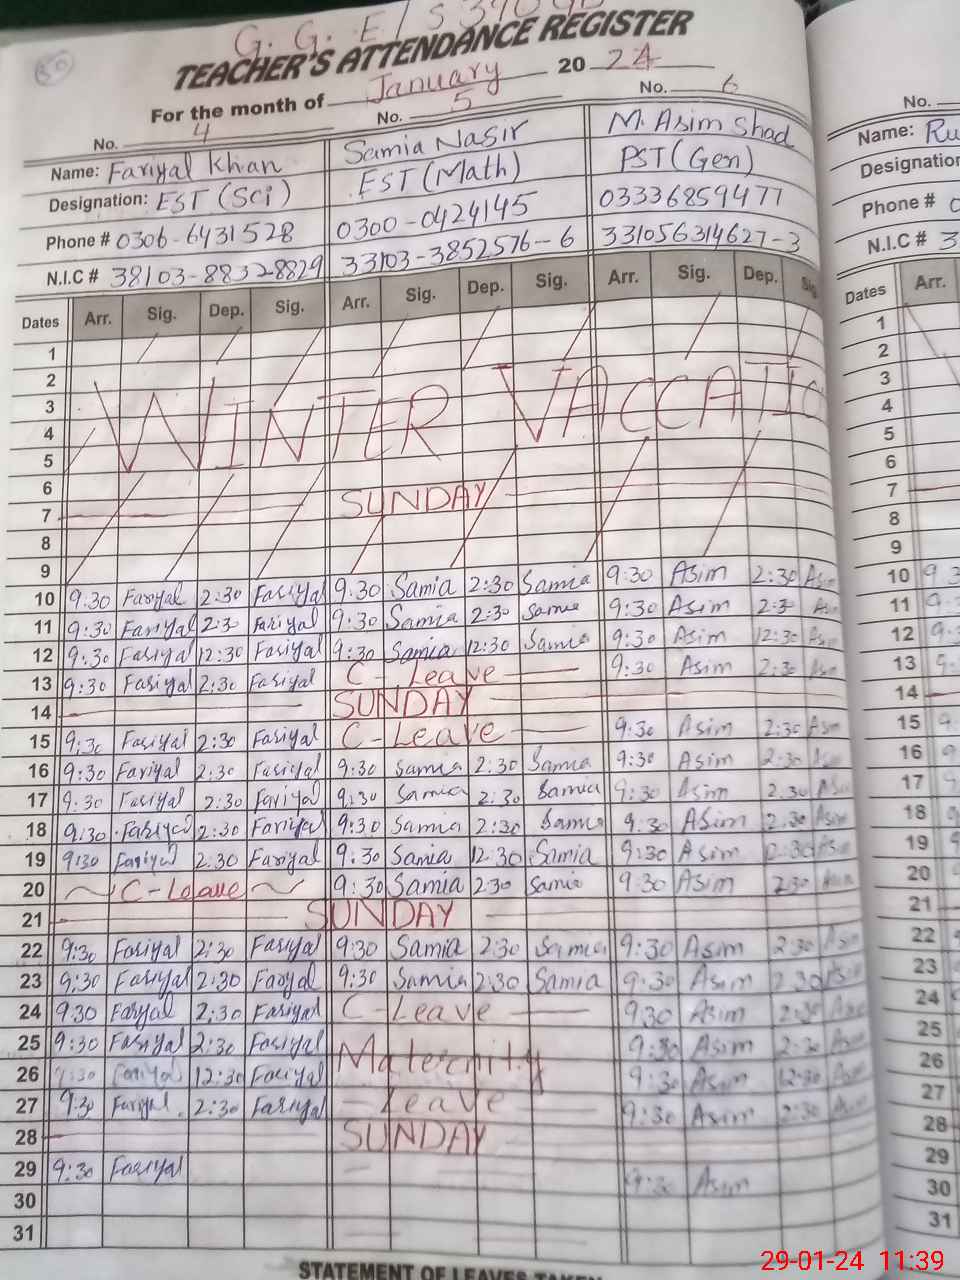 G. G. E/S
TEACHER'S ATTENDANCE REGISTER
50
For the month of January 2024
No. 4 No. 5 No. 6
Name: Fariyal Khan Samia Nasir M. Asim Shad
Designation: EST (Sci) EST (Math) PST (Gen)
Phone # 0306-6431528 0300-0424145 03336859477
N.I.C # 38103-88328829 33103-3852576-6 331056314627-3
Dates Arr. Sig. Dep. Sig. Arr. Sig. Dep. Sig. Arr. Sig. Dep. Sig
1
2
3 WINTER VACCATIO
4
5
6
7 SUNDAY
8
9
10 9:30 Fariyal 2:30 Fariyal 9:30 Samia 2:30 Samia 9:30 Asim 2:30 Asim
11 9:30 Fariyal 2:3 Fariyal 9:30 Samia 2:30 Samia 9:30 Asim 2:3 As
12 9:30 Fariyal 12:30 Fariyal 9:30 Samia 12:30 Samia 9:30 Asim 12:30 Asim
13 9:30 Fariyal 2:30 Fariyal C-Leave 9:30 Asim 2:30 Asim
14 SUNDAY
15 9:30 Fariyal 2:30 Fariyal C-Leave 9:30 Asim 2:30 Asim
16 9:30 Fariyal 2:30 Fariyal 9:30 Samia 2:30 Samia 9:30 Asim 2:30 Asim
17 9:30 Fariyal 2:30 Fariyal 9:30 Samia 2:30 Samia 9:30 Asim 2:30 Asim
18 9:30 Fariyal 2:30 Fariyal 9:30 Samia 2:30 Samia 9:30 Asim 2:30 Asim
19 9:30 Fariyal 2:30 Fariyal 9:30 Samia 12:30 Samia 9:30 Asim 2:30 Asim
20 C-Leave 9:30 Samia 230 Samia 9:30 Asim 2:30 Asim
21 SUNDAY
22 9:30 Fariyal 2:30 Fariyal 9:30 Samia 2:30 Samia 9:30 Asim 2:30 Asim
23 9:30 Fariyal 2:30 Faryal 9:30 Samia 2:30 Samia 9:30 Asim 2:30 Asim
24 9:30 Faryal 2:30 Fariyal C-Leave 9:30 Asim 2:30 Asim
25 9:30 Fariyal 2:30 Fariyal Maternity 9:30 Asim 2:30 Asim
26 9:30 Fariyal 12:30 Fariyal 9:30 Asim 12:30 Asim
27 9:30 Fariyal 2:30 Fariyal Leave 9:30 Asim 2:30 Asim
28 SUNDAY
29 9:30 Fariyal 9:30 Asim
30
31
STATEMENT OF LEAVES TAKEN
No.
Name: Ru
Designation
Phone # 0
N.I.C # 3
Dates Arr.
1
2
3
4
5
6
7
8
9
10 9 3
11 9
12 9
13 9
14
15 9
16 9
17 9
18
19
20
21
22
23
24
25
26
27
28
29
30
31
29-01-24 11:39